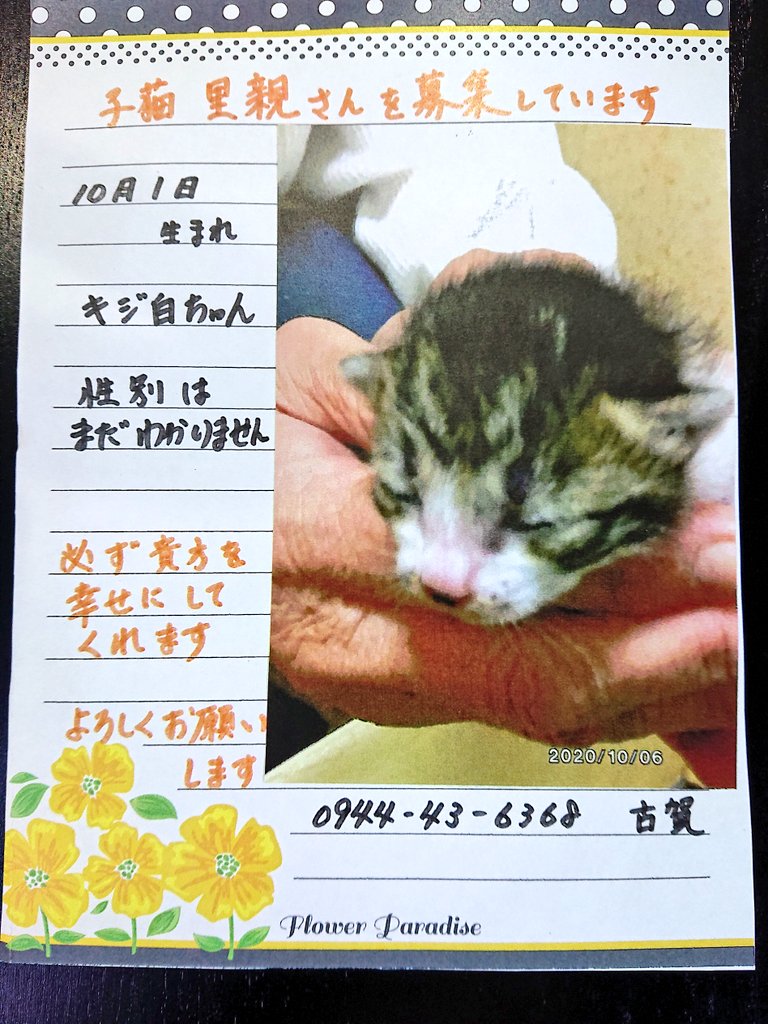 子猫 里親さんを募集しています
10月1日
生まれ
キジ白ちゃん
性別は
まだわかりません
必ず貴方を
幸せにして
くれます
よろしくお願い
します
2020/10/06
0944-43-6368 古賀
Flower Paradise